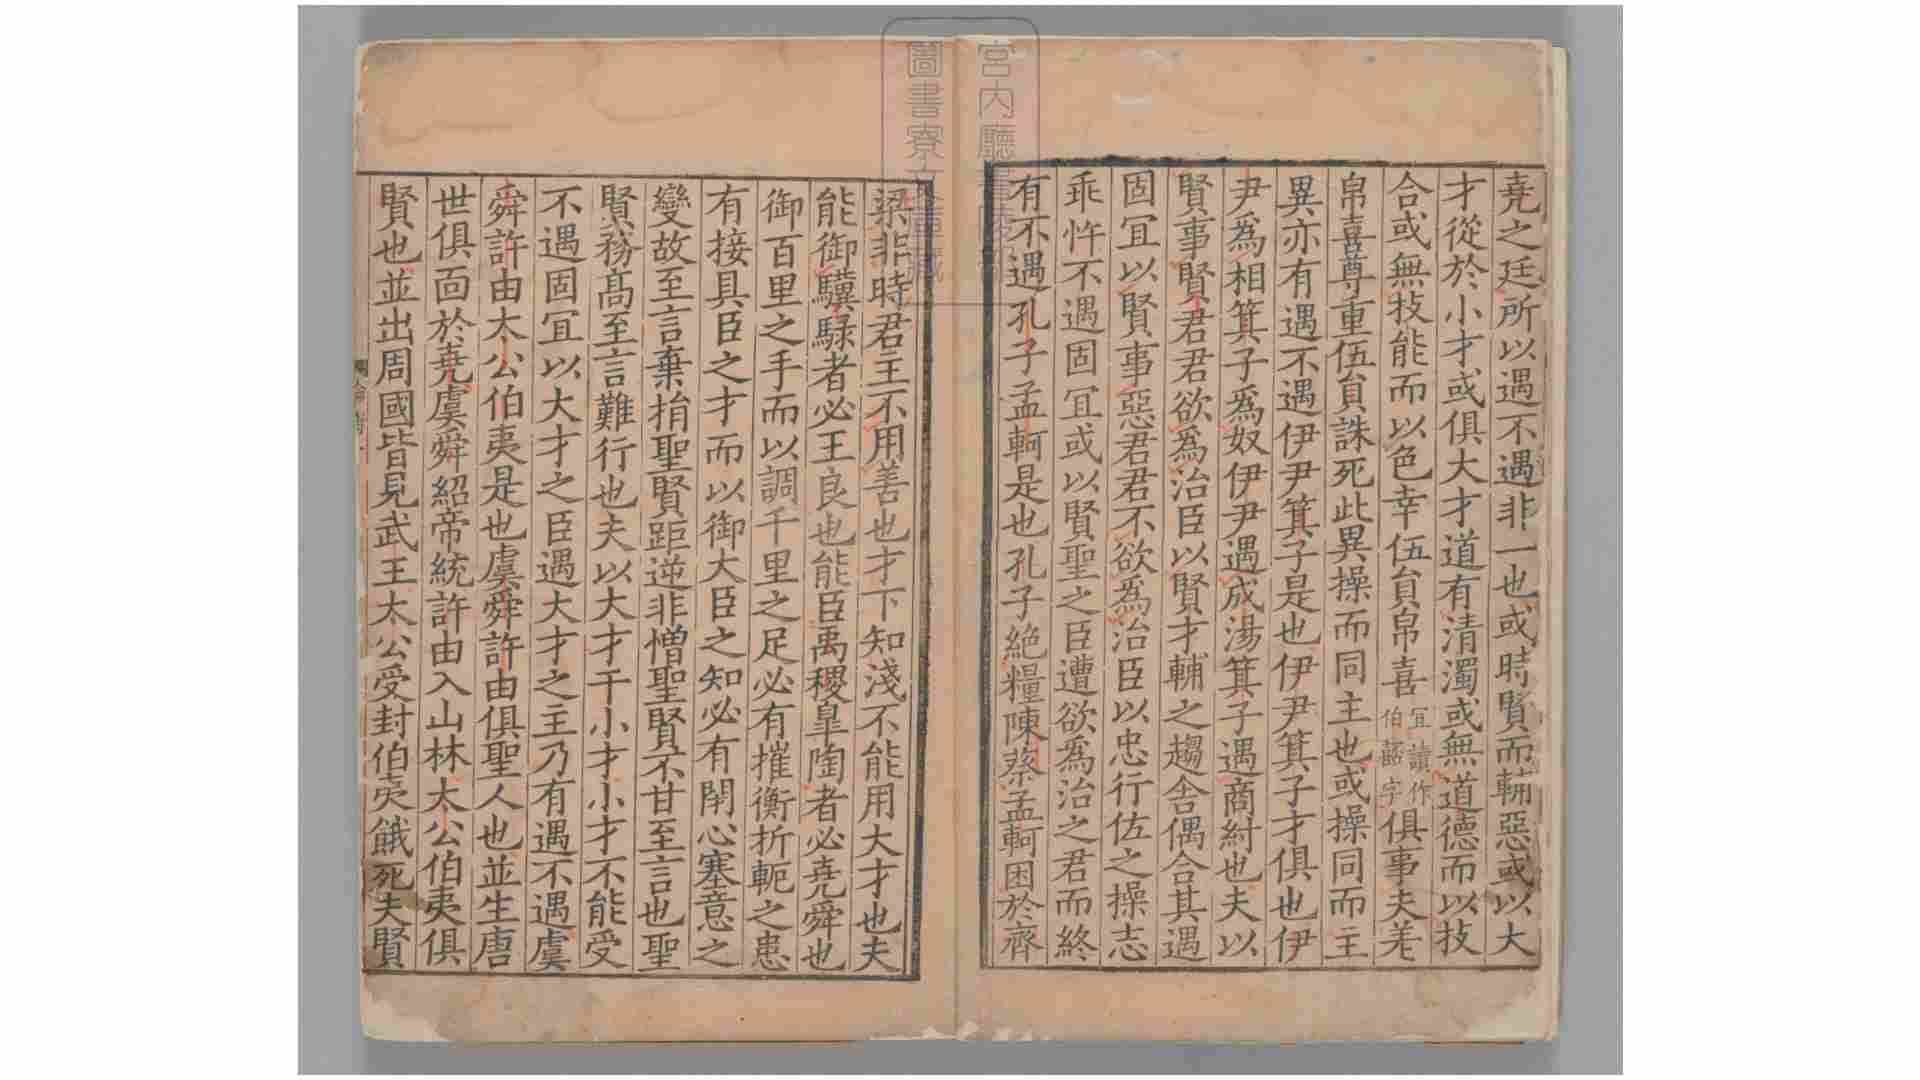 堯之廷所以遇不遇非一也或時賢而輔惡或以大
才從於小才或俱大才道有清濁或無道德而以技
合或無技能而以色幸伍員帛喜宜讀作伯嚭字俱事夫差
帛喜尊重伍員誅死此異操而同主也或操同而主
異亦有遇不遇伊尹箕子是也伊尹箕子才俱也伊
尹爲相箕子爲奴伊尹遇成湯箕子遇商紂也夫以
賢事賢君君欲爲治臣以賢才輔之趨舍偶合其遇
固冝以賢事惡君君不欲爲治臣以忠行佐之操志
乖忤不遇固冝或以賢聖之臣遭欲爲治之君而終
有不遇孔子孟軻是也孔子絶糧陳蔡孟軻困於齊
梁非時君主不用善也才下知淺不能用大才也夫
能御驥騄者必王良也能臣禹稷臯陶者必堯舜也
御百里之手而以調千里之足必有摧衡折軛之患
有接具臣之才而以御大臣之知必有閉心塞意之
變故至言棄捐聖賢距逆非憎聖賢不甘至言也聖
賢務髙至言難行也夫以大才干小才小才不能受
不遇固冝以大才之臣遇大才之主乃有遇不遇虞
舜許由太公伯夷是也虞舜許由俱聖人也並生唐
世俱面於堯虞舜紹帝統許由入山林太公伯夷俱
賢也並出周國皆見武王太公受封伯夷餓死夫賢
宮内廳
圖書寮